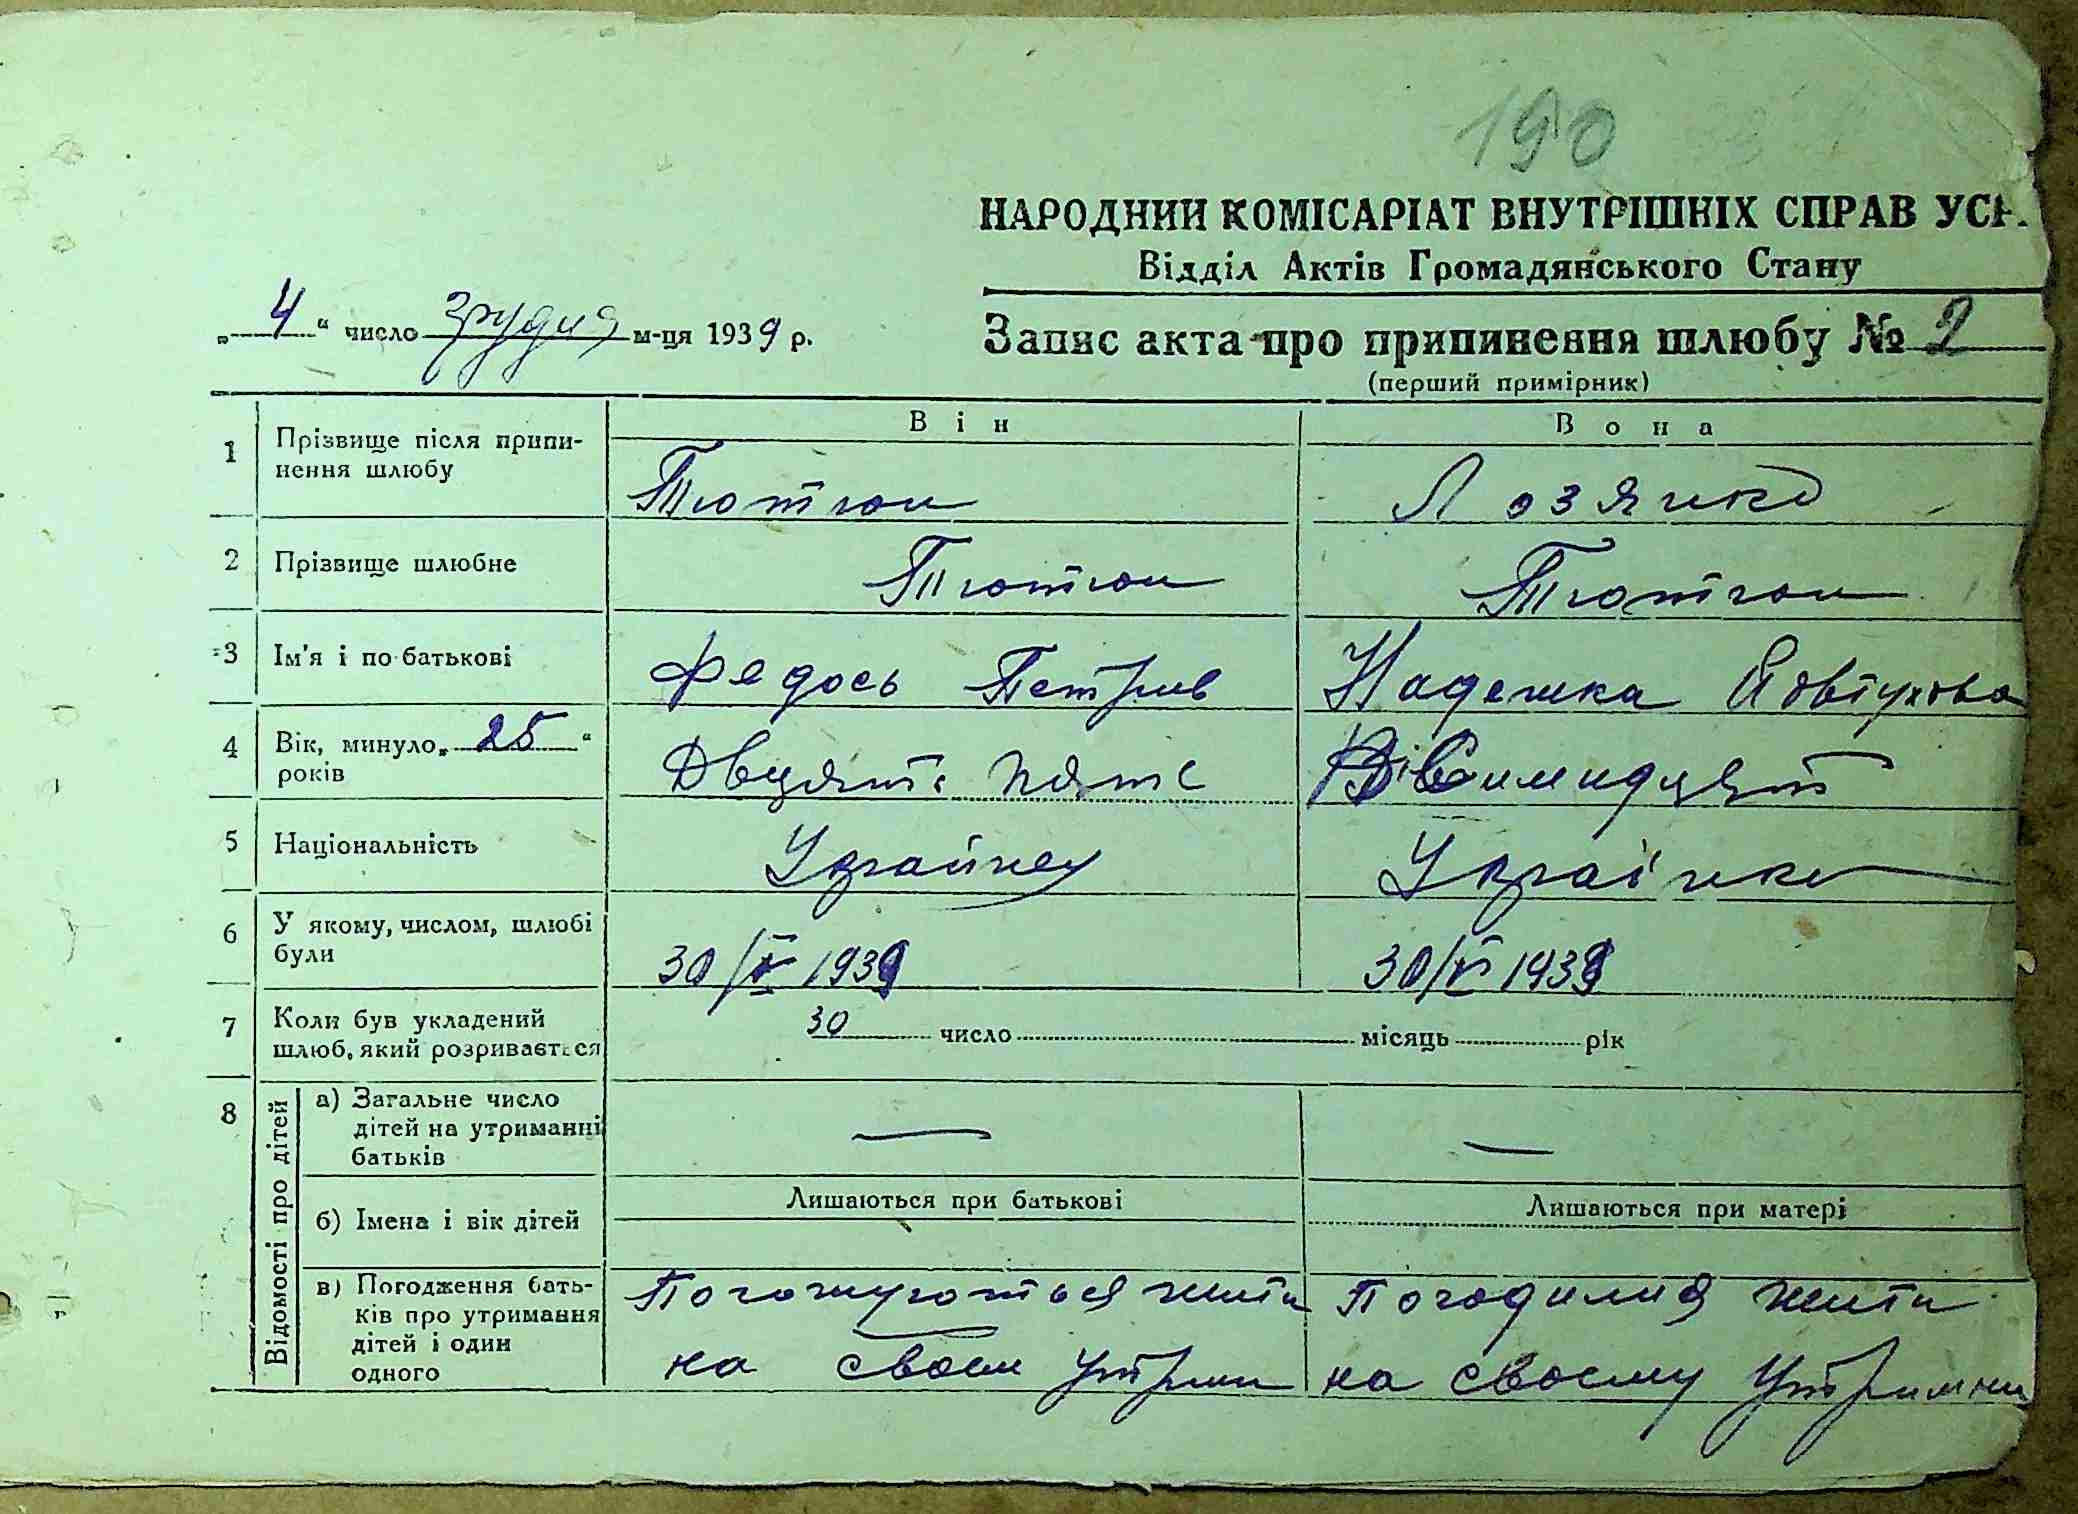 190
НАРОДНИЙ КОМІСАРІАТ ВНУТРІШНІХ СПРАВ УСР.
Відділ Актів Громадянського Стану
„ 4 “ число грудня м-ця 1939 р.
Запис акта про припинення шлюбу № 2
(перший примірник)
Він Вона
1 Прізвище після припи-
нення шлюбу
Тютюн Лозячко
2 Прізвище шлюбне Тютюн Тютюн
3 Ім'я і по батькові Федось Петрів Надежка Явтухова
4 Вік, минуло „ 25 “
років
Двцять пять Вісимндцят
5 Національність Українец Українка
6 У якому, числом, шлюбі
були
30/V 1939 30/V 1939
7 Коли був укладений
шлюб, який розривається
30 число місяць рік
8 Відомості про дітей
а) Загальне число
дітей на утриманні
батьків
— —
Лишаються при батькові Лишаються при матері
б) Імена і вік дітей
в) Погодження бать-
ків про утримання
дітей і один
одного
жити Погодилися жити
на своем на своему